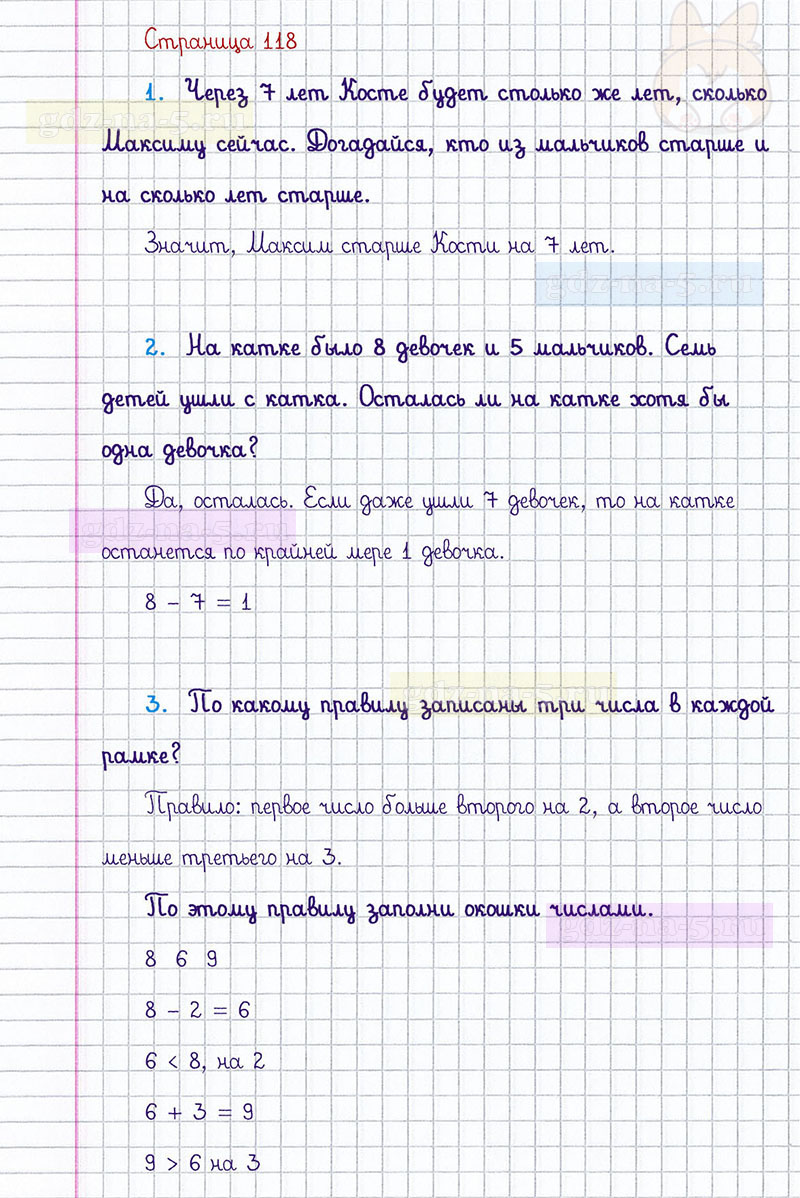 Страница 118
1. Через 7 лет Косте будет столько же лет, сколько
gdz-na-5.ru
Максиму сейчас. Догадайся, кто из мальчиков старше и
на сколько лет старше.
Значит, Максим старше Кости на 7 лет.
gdz-na-5.ru
2. На катке было 8 девочек и 5 мальчиков. Семь
детей ушли с катка. Осталась ли на катке хотя бы
одна девочка?
Да, осталась. Если даже ушли 7 девочек, то на катке
gdz-na-5.ru
останется по крайней мере 1 девочка.
8 - 7 = 1
gdz-na-5.ru
3. По какому правилу записаны три числа в каждой
рамке?
Правило: первое число больше второго на 2, а второе число
меньше третьего на 3.
По этому правилу заполни окошки числами.
gdz-na-5.ru
8 6 9
8 - 2 = 6
6 < 8, на 2
6 + 3 = 9
9 > 6 на 3